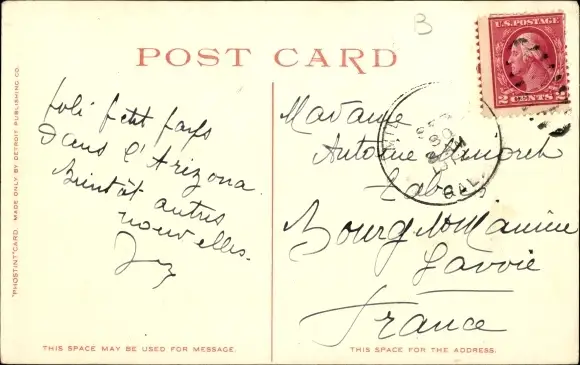 B
POST CARD
U.S. POSTAGE
2 CENTS 2
"PHOSTINT" CARD. MADE ONLY BY DETROIT PUBLISHING CO.
Joli petit pays
Dans l'Arizona.
Bientôt autres
nouvelles.
Madame
Antoine
Tabac
Bourg St Maurice
Savoie
France
CAL.
THIS SPACE MAY BE USED FOR MESSAGE.
THIS SPACE IS FOR THE ADDRESS.